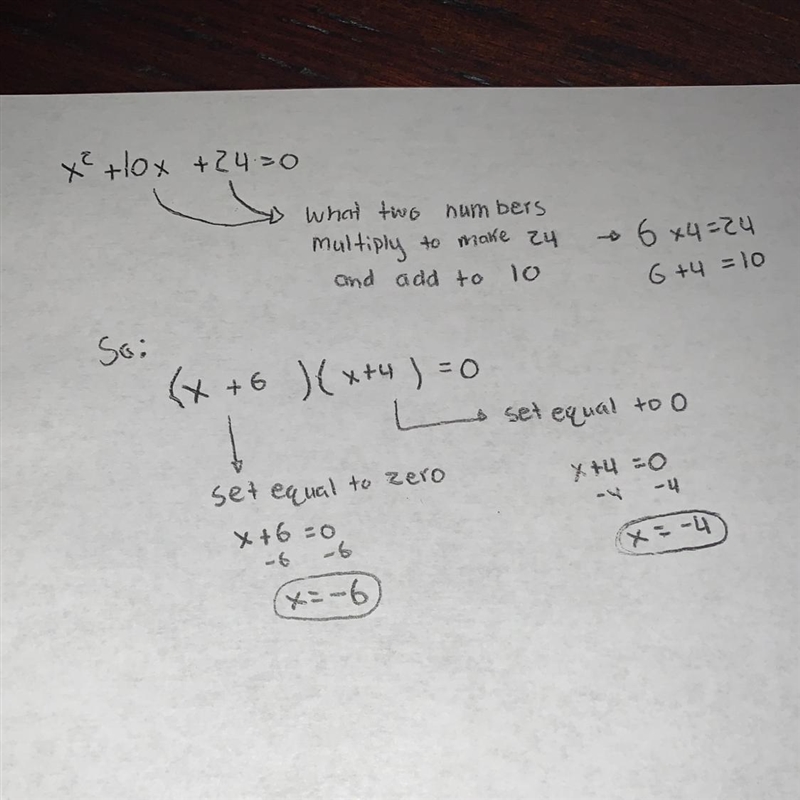 x² +10x +24=0
What two numbers
multiply to make 24 → 6 x4=24
and add to 10 6 +4 =10
So:
(x +6 )(x+4 ) =0
set equal to 0
set equal to zero
x+4 =0
-4 -4
x = -4
x+6 =0
-6 -6
x= -6